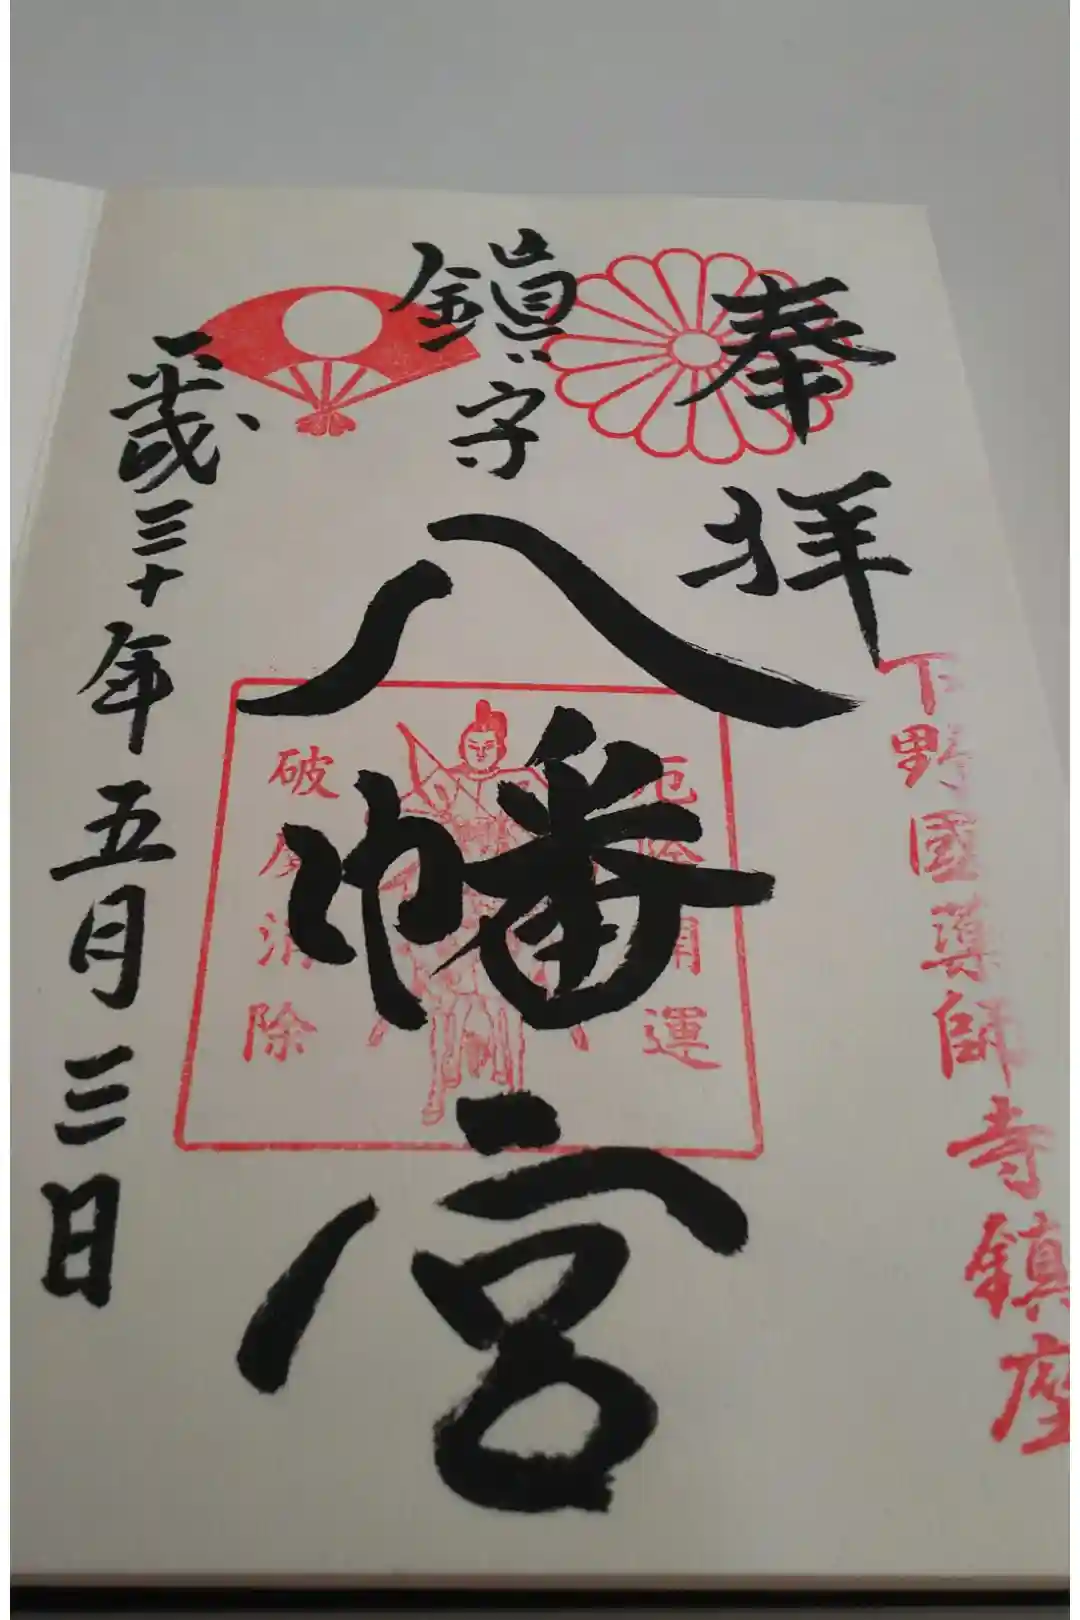 下野國薬師寺鎮座
奉拝
鎭守
八幡宮
厄除開運
破魔消除
平成三十年五月三日